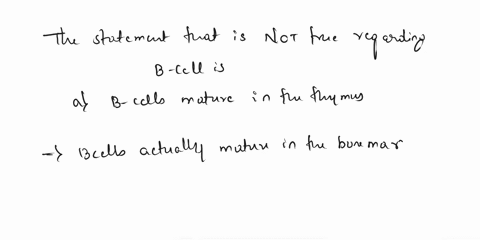 The statement that is NOT true regarding
B-cell is
a) B-cells mature in the thymus
-> B cells actually mature in the bone mar